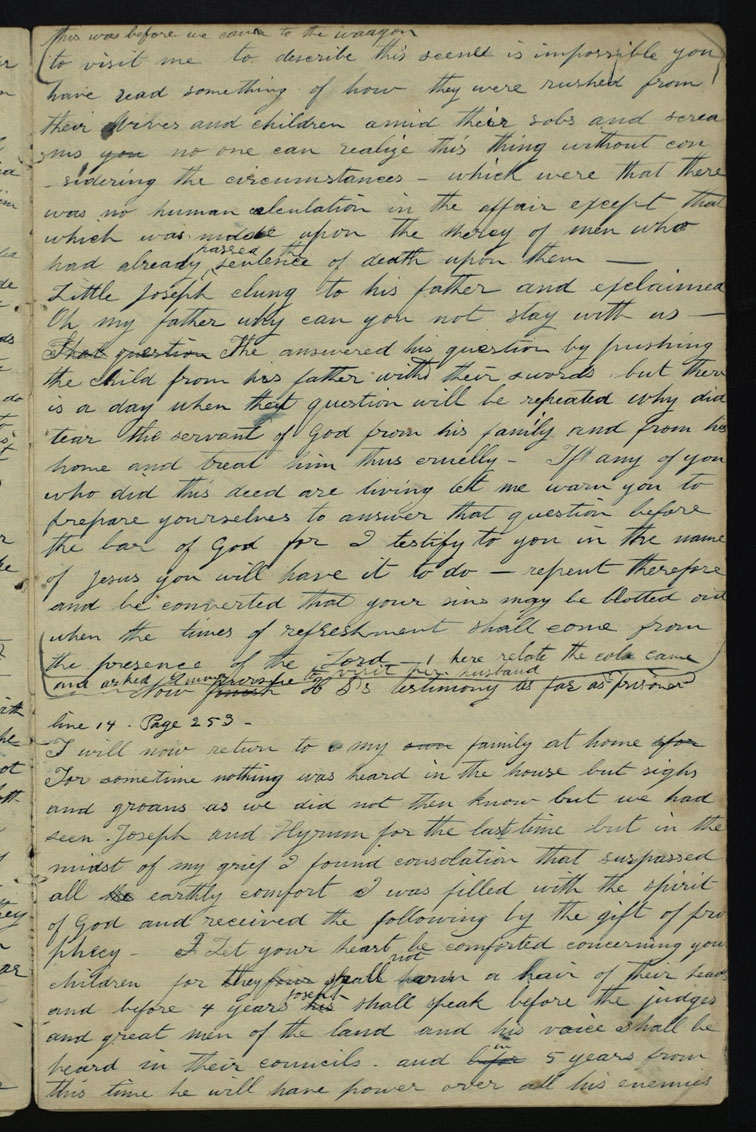 this was before we came to the waagon
to visit me to describe this scene is impossible you
have read something of how they were rushed from
their wives and children amid their sobs and screa
ms you no one can realize this thing without con
-sidering the circumstances - which were that there
was no human calculation in the affair except that
which was made upon the mercy of men who
had already passed the sentence of death upon them —
Little Joseph clung to his father and exclaimed
Oh, my father why can you not stay with us —
That question The answered his question by pushing
the child from his father with their swords but there
is a day when that question will be repeated why did
tear the servant of God from his family and from his
home and treat him thus cruelly - If any of you
who did this deed are living let me warn you to
prepare yourselves to answer that question before
the bar of God for I testify to you in the name
of Jesus you will have it to do — repent therefore
and be converted that your sins may be blotted out
when the times of refreshment shall come from
the presence of the Lord here relate the cola came
and asked to visit her husband
Now finish H Ss testimony as far as prisoner
line 14 - Page 253 -
I will now return to my own family at home for
For sometime nothing was heard in the house but sighs
and groans as we did not then know but we had
seen Joseph and Hyrum for the last time but in the
midst of my grief I found consolation that surpassed
all the earthly comfort I was filled with the spirit
of God and received the following by the gift of pro
phecy - Let your heart be comforted concerning your
children for they shall not harm a hair of their head
and before 4 years his Joseph shall speak before the judges
and great men of the land and his voice shall be
heard in their councils. and befor in 5 years from
this time he will have power over all his enemies